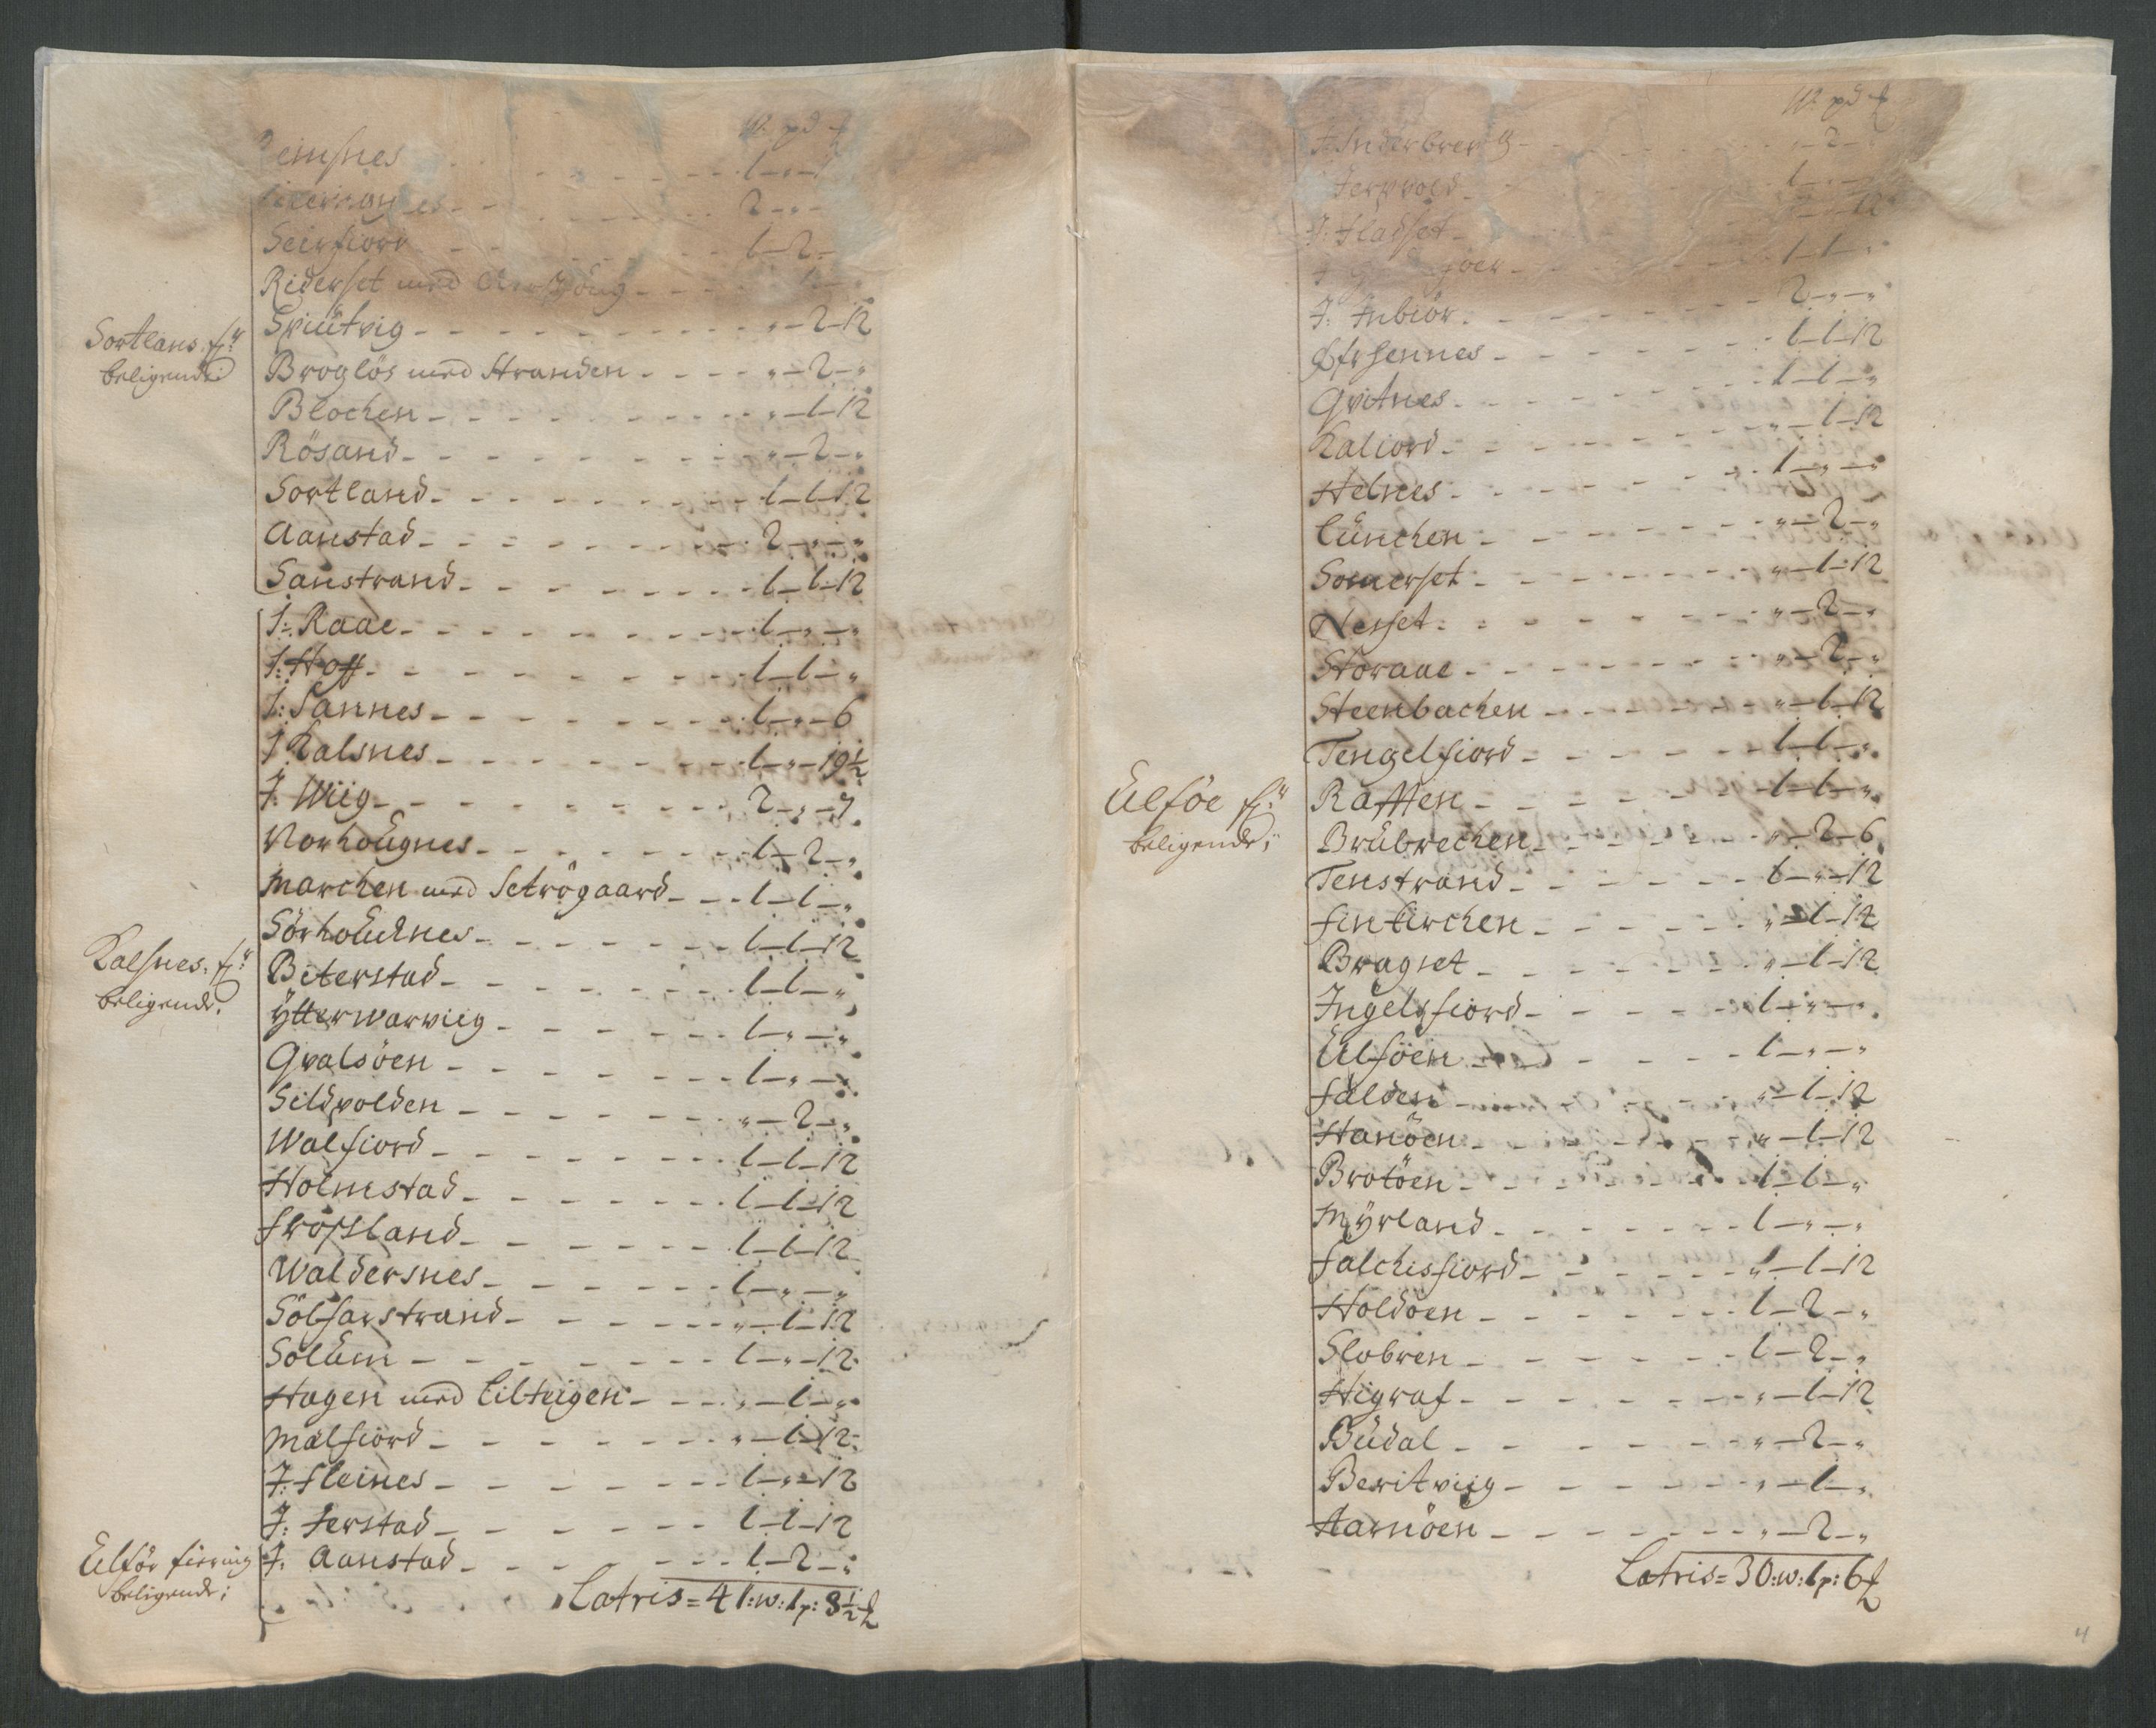 W: pd
Remsnes - - - 1-„-
2-„-
Seirfiord - - - 1-2-
Riderset med
Sortlans. fr:
beligende
Spiutvig - - - „-2-12
Broglös med Stranden - - - „-2-„
Blochen - - - „-1-12
Rösand - - - „-2-„
Sortland - - - 1-1-12
Aanstad - - - 2-„-„
Saustrand - - - 1-1-12
J: Raae - - - 1-„-„
J: Hoff - - - 1-1-„
J: Sannes - - - 1-„-6
J Kalsnes - - - 1-„-19½
J. Wiig - - - 2-„-7
Norhougnes - - - 1-2-„
Marchen med Setrögaard - - - 1-1-„
Kalsnes. fr:
beligende.
Sörhoucknes - - - 1-1-12
Beterstad - - - 1-1-„
Ytterwarviig - - - 1-„-„
Gvalsöen - - - 1-„-„
Sildvolden - - - „-2-„
Walfiord - - - 1-1-12
Holmstad - - - 1-1-12
Fröstland - - - 1-1-12
Waldersnes - - - 1-„-„
Sölfarstrand - - - „-1-12
Solum - - - 1-„-12
Hagen med Lilteigen - - - „-1-„
Malfiord - - - „-1-12
J: Fleines - - - 1-„-12
J: Jerstad - - - 1-1-12
Ulför fiering
beligende;
J: Aanstad - - - 1-2-„
Latris = 41:w: 1p: 8½
W: pd
J: Inderbrevig - - - „-2-
1-
J: Fladset - - - 12
goer - - - 1-1-„
J: Indiör - - - 2-„-„
Efrhennes - - - 1-1-12
Qvitnes - - - 1-1-„
Kaliord - - - „-1-12
Helnes - - - 1-„-„
Lünchen - - - „-2-„
Somerset - - - „-1-12
Nesset - - - „-2-„
Storaae - - - „-2-„
Steenbachen - - - „-1-12
Tengelfiord - - - 1-1-„
Ulföe fr:
beligende;
Raften - - - 1-1-„
Brübrechen - - - „-2-6
Tenstrand - - - 1-„-12
Finkirchen - - - „-1-12
Bragnet - - - „-1-12
Ingelsfiord - - - 1-„-„
Ulföen - - - 1-„-„
Falden - - - „-1-12
Hanöen - - - „-1-12
Brotöen - - - 1-1-„
Myrland - - - 1-„-„
Falchisfiord - - - „-1-12
Holdöen - - - 1-2-„
Slobren - - - 1-2-„
Higraf - - - „-1-12
Büdal - - - „-2-„
Beritviig - - - „-1-„
Aarnöen - - - „-2-„
Latris = 30:w: 1p: 6
4